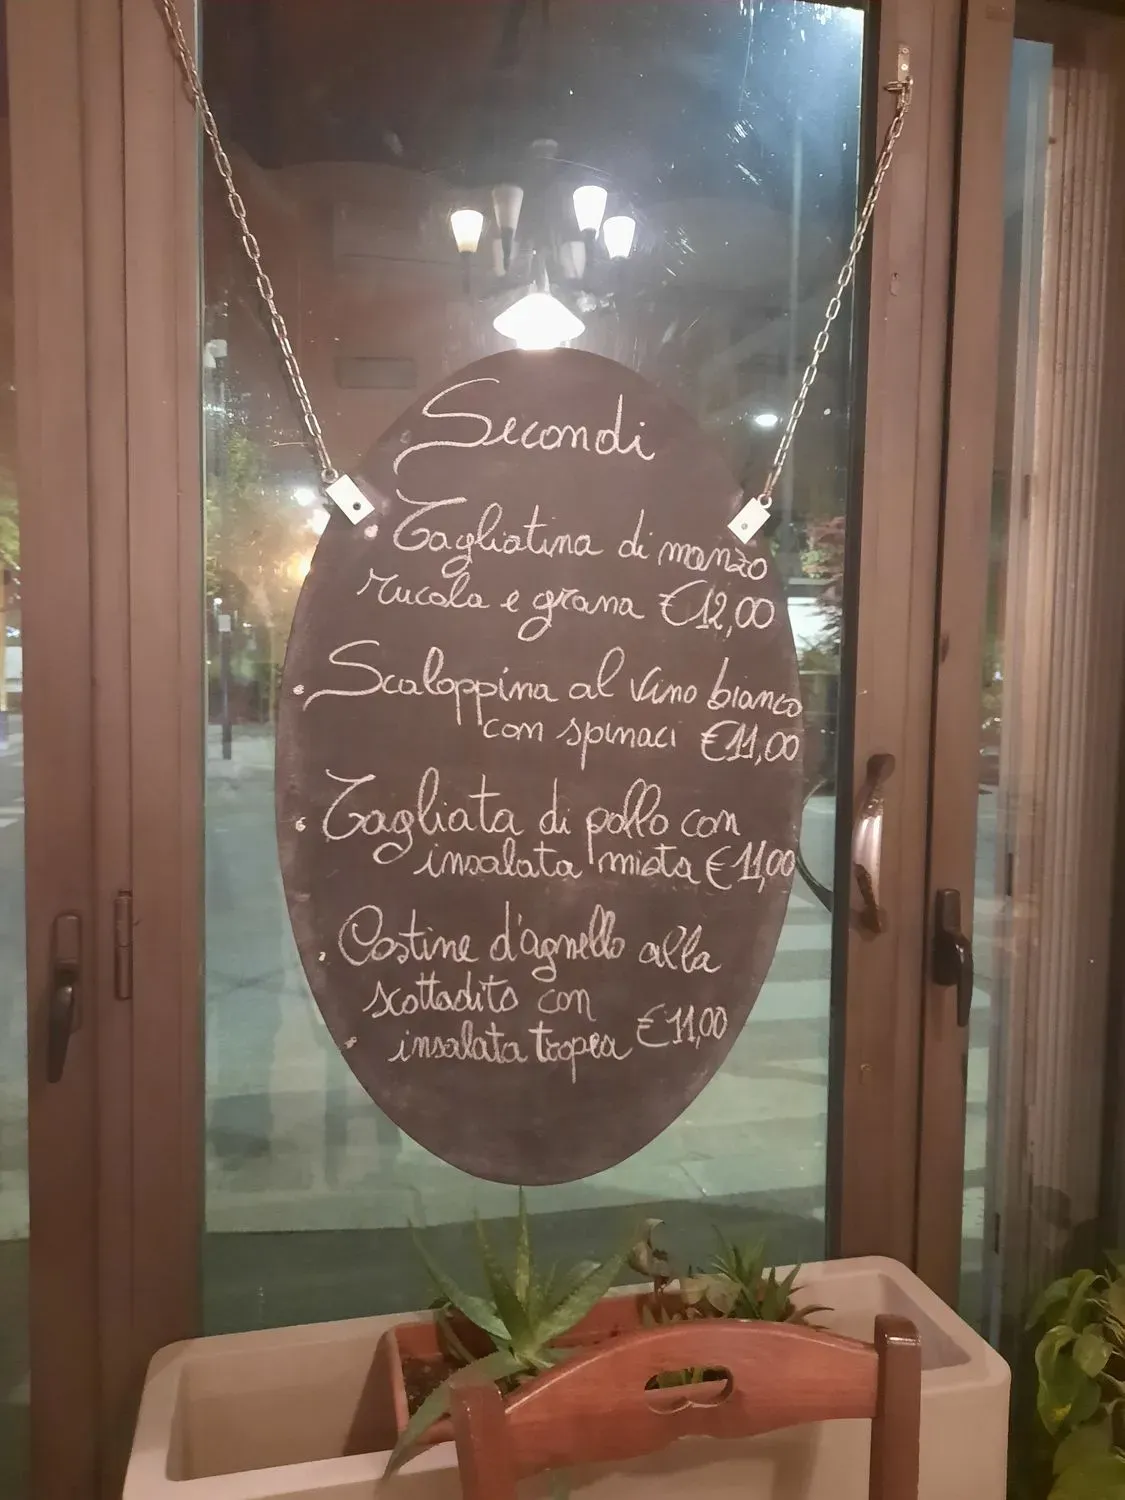 Secondi
• Tagliatina di manzo
rucola e grana €12,00
• Scaloppina al vino bianco
con spinaci €11,00
• Tagliata di pollo con
insalata mista €11,00
• Costine d'agnello alla
scottadito con
• insalata tropea €11,00